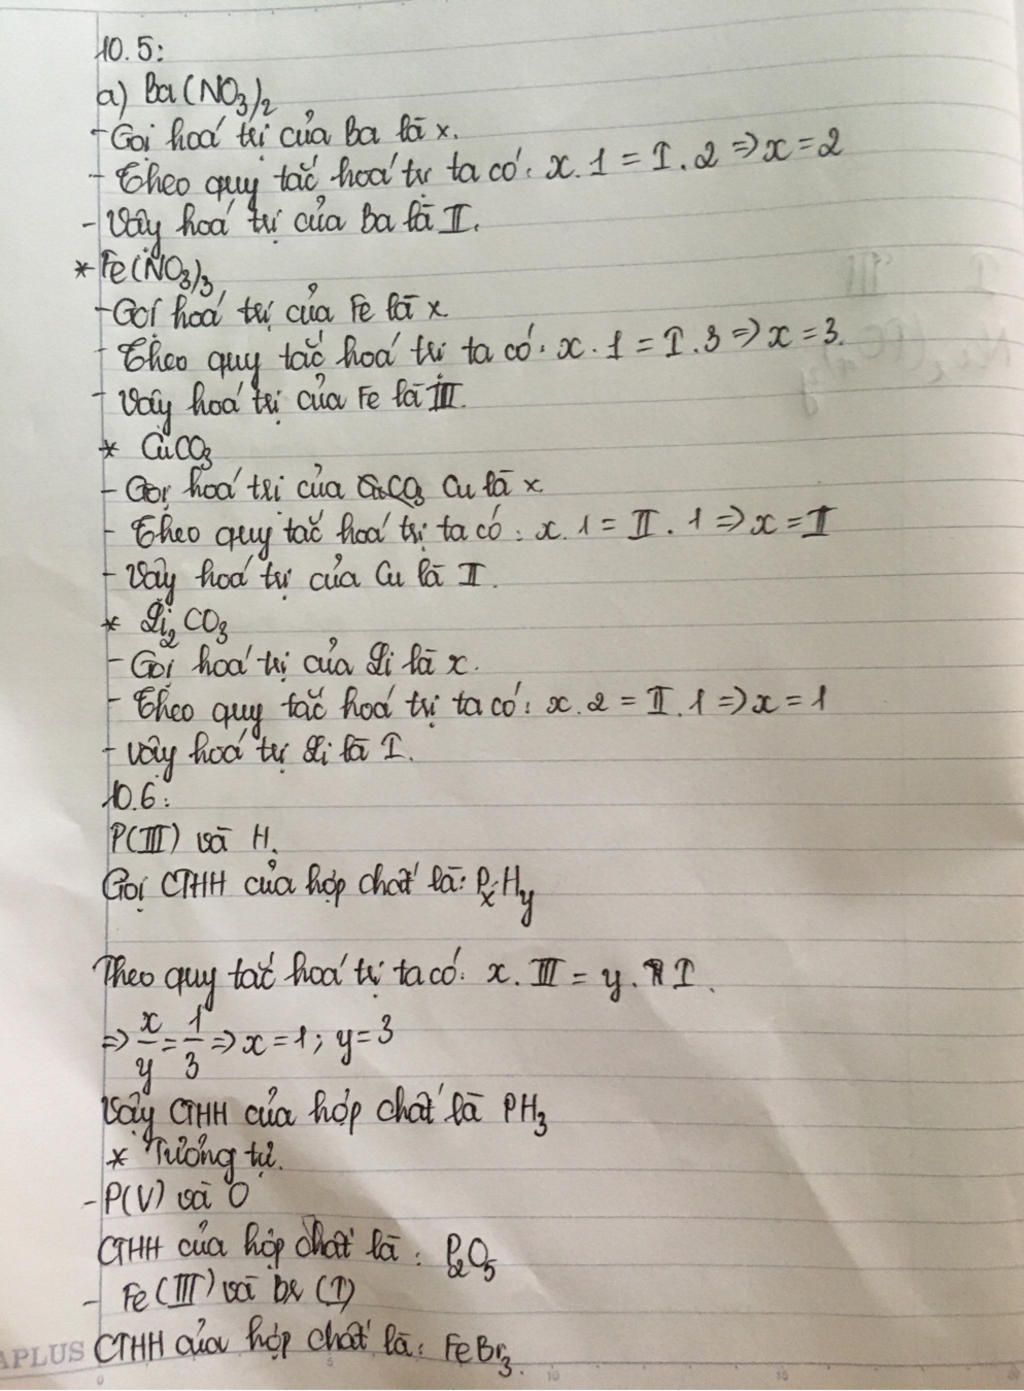 10.5:
a) Ba(NO3)2
- Gọi hoá trị của Ba là x.
- Theo quy tắc hoá trị ta có: x.1 = I.2 => x = 2
- Vậy hoá trị của Ba là II.
* Fe(NO3)3
- Gọi hoá trị của Fe là x.
- Theo quy tắc hoá trị ta có: x.1 = I.3 => x = 3.
- Vậy hoá trị của Fe là III.
* CuCO3
- Gọi hoá trị của Cu là x.
- Theo quy tắc hoá trị ta có: x.1 = II.1 => x = II
- Vậy hoá trị của Cu là II.
* Li2CO3
- Gọi hoá trị của Li là x.
- Theo quy tắc hoá trị ta có: x.2 = II.1 => x = 1
- Vậy hoá trị Li là I.
10.6:
P(III) và H.
Gọi CTHH của hợp chất là: PxHy
Theo quy tắc hoá trị ta có: x.III = y.I.
=> x/y = 1/3 => x = 1; y = 3
Vậy CTHH của hợp chất là PH3
* Tương tự.
- P(V) và O
CTHH của hợp chất là: P2O5
- Fe(III) và Br(I)
CTHH của hợp chất là: FeBr3.
APLUS 0 5 10 15 20